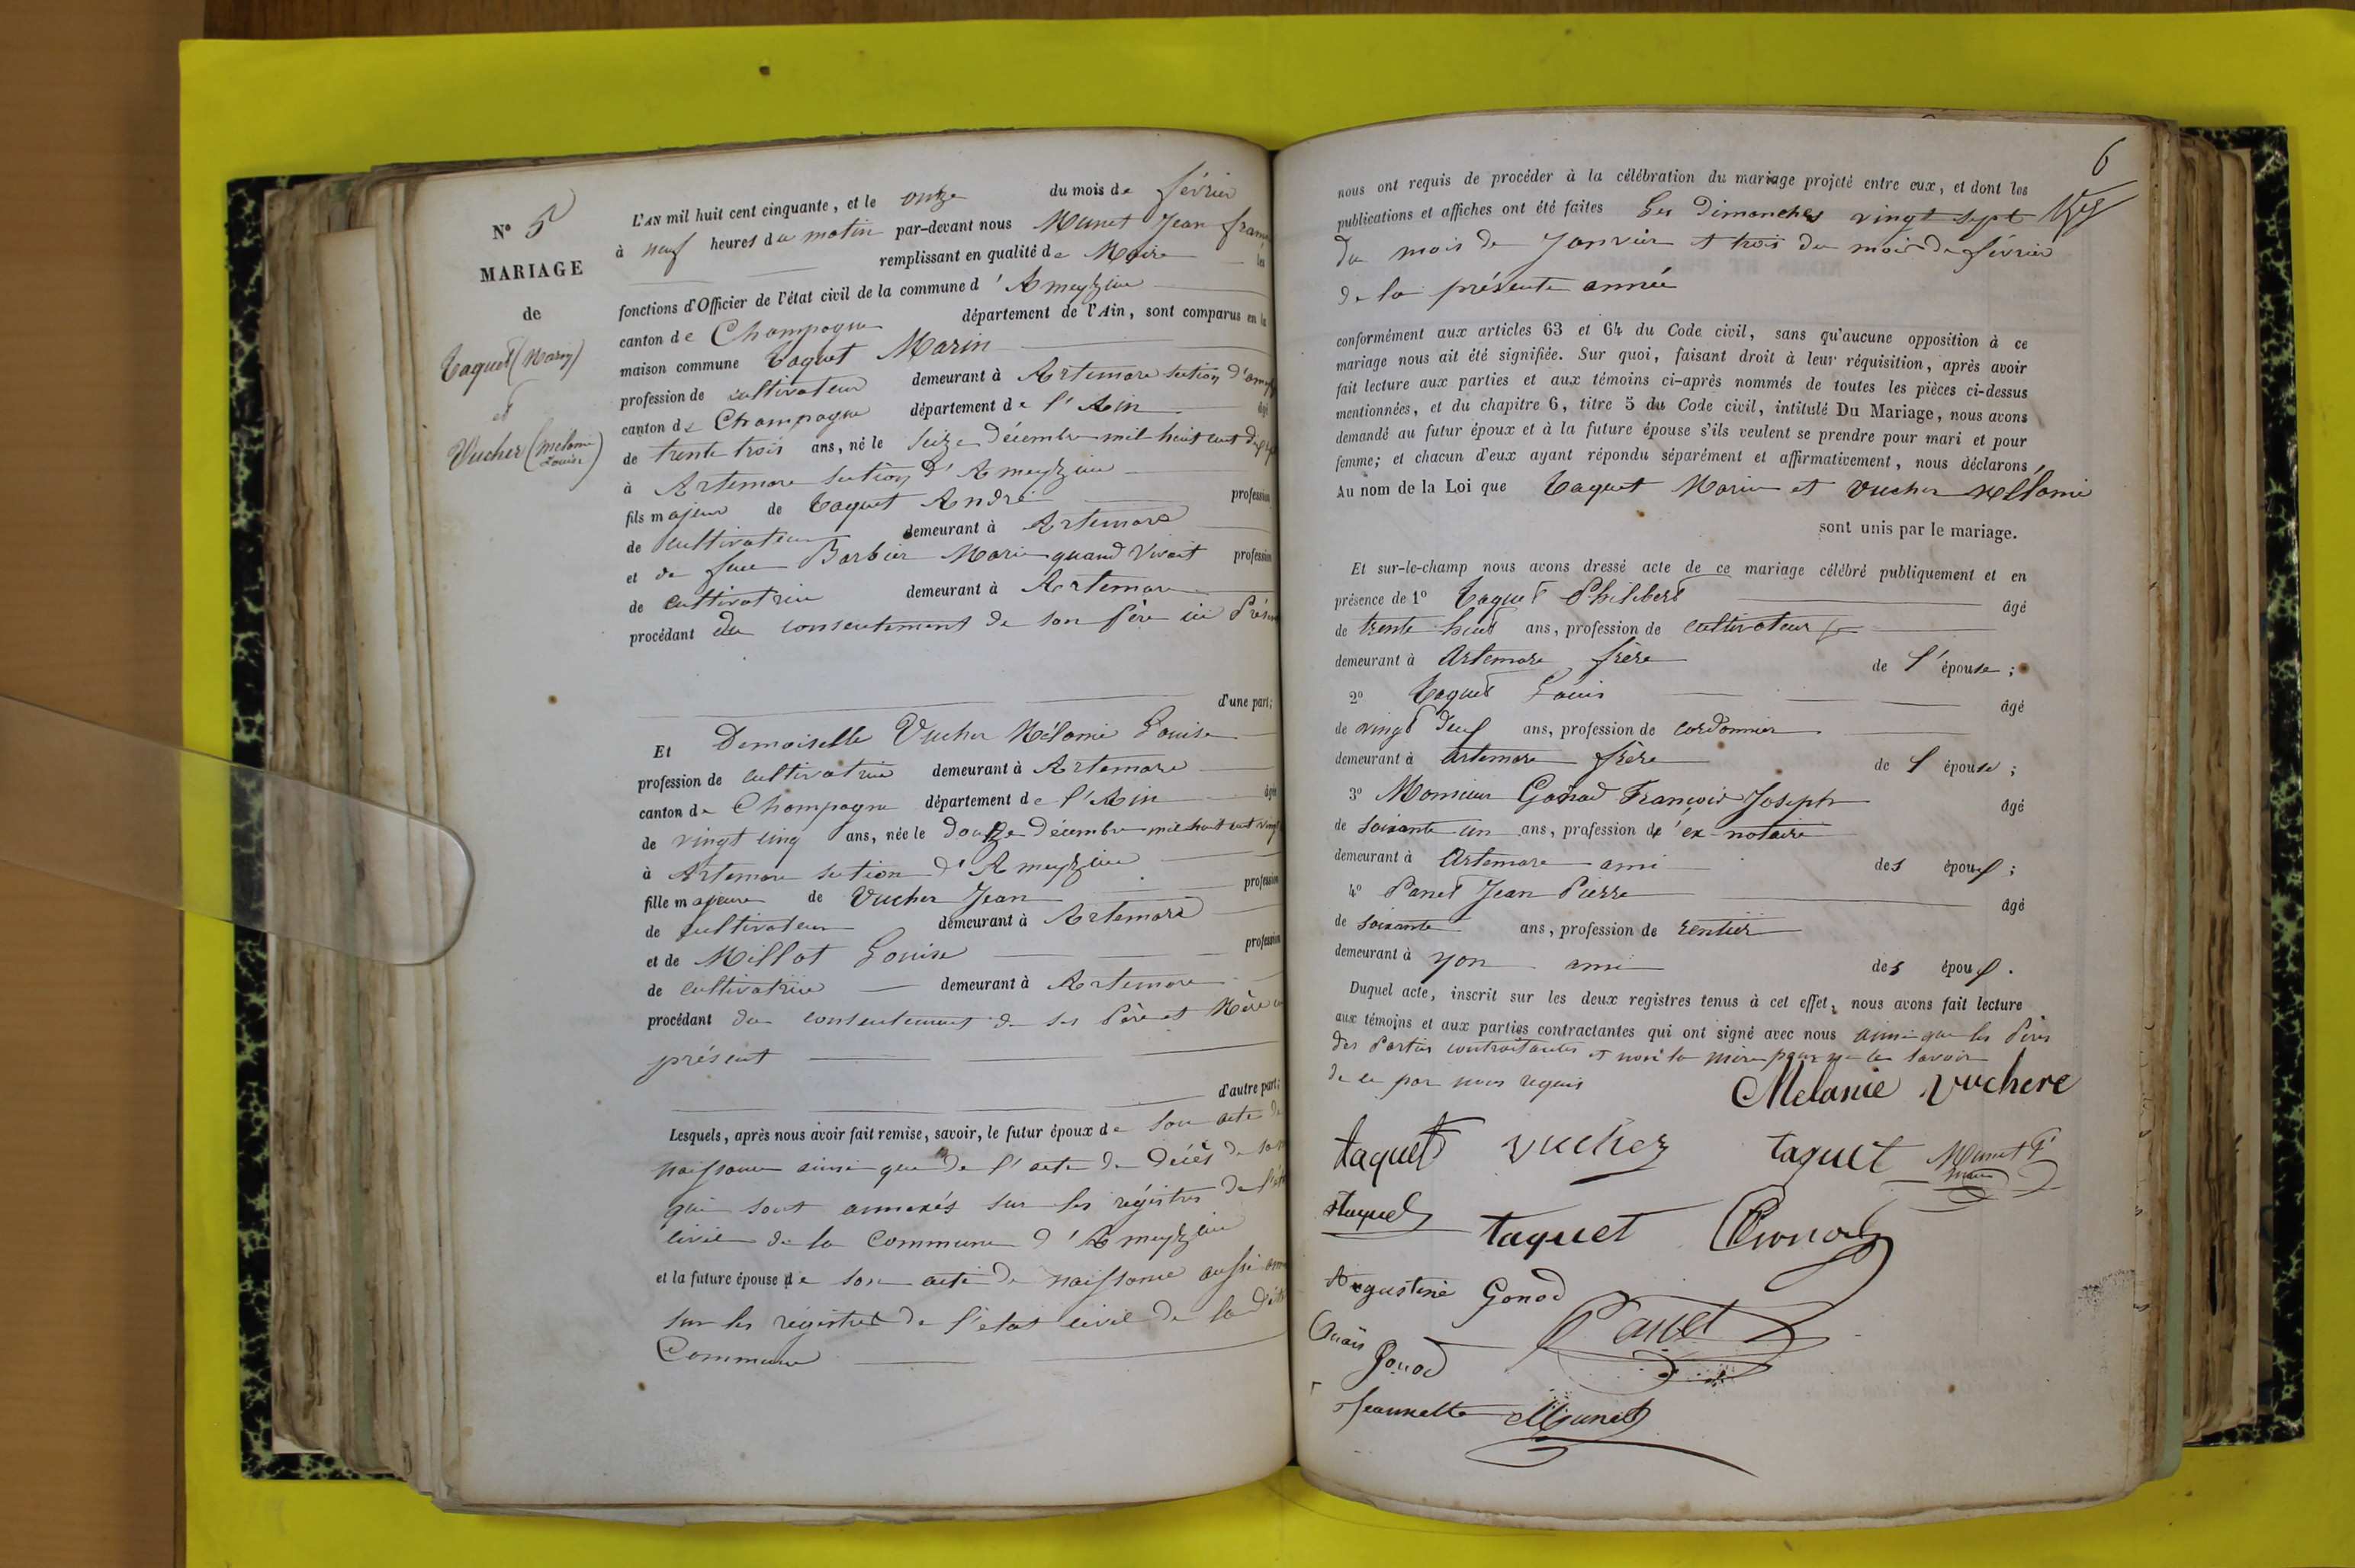 N° 5
MARIAGE
de
Taquet (Marin)
et
Vucher (Mélanie
Louise)
L'AN mil huit cent cinquante, et le onze du mois de février
à neuf heures du matin par-devant nous Munet Jean
remplissant en qualité de Maire les
fonctions d'Officier de l'état civil de la commune d'Ameyzieu
canton de Champagne département de l'Ain, sont comparus en la
maison commune Taquet Marin
profession de cultivateur demeurant à Artemare section
canton de Champagne département de l'Ain âgé
de trente trois ans, né le seize décembre mil huit cent
à Artemare section d'Ameyzieu
fils majeur de Taquet André profession
de cultivateur demeurant à Artemare
et de feue Barbier Marie quand vivait profession
de cultivatrice demeurant à Artemare
procédant du consentement de son père ici
d'une part;
Et Demoiselle Vucher Mélanie Louise
profession de cultivatrice demeurant à Artemare
canton de Champagne département de l'Ain âgée
de vingt cinq ans, née le douze décembre mil huit cent vingt
à Artemare section d'Ameyzieu
fille majeure de Vucher Jean profession
de cultivateur demeurant à Artemare
et de Millot Louise profession
de cultivatrice demeurant à Artemare
procédant du consentement de ses Père et Mère
présent
d'autre part;
Lesquels, après nous avoir fait remise, savoir, le futur époux de son acte de
naissance ainsi que de l'acte de décès de
qui sont annexés sur les régistres de
civil de la Commune d'Ameyzieu
et la future épouse de son acte de naissance aussi
sur les régistres de l'etat civil de la
Commune
6
nous ont requis de procéder à la célébration du mariage projeté entre eux, et dont les
publications et affiches ont été faites Les Dimanches vingt sept
du mois de Janvier et trois du mois de février
de la présente année
conformément aux articles 63 et 64 du Code civil, sans qu'aucune opposition à ce
mariage nous ait été signifiée. Sur quoi, faisant droit à leur réquisition, après avoir
fait lecture aux parties et aux témoins ci-après nommés de toutes les pièces ci-dessus
mentionnées, et du chapitre 6, titre 5 du Code civil, intitulé Du Mariage, nous avons
demandé au futur époux et à la future épouse s'ils veulent se prendre pour mari et pour
femme; et chacun d'eux ayant répondu séparément et affirmativement, nous déclarons,
Au nom de la Loi que Taquet Marin et Vucher Mélanie
sont unis par le mariage.
Et sur-le-champ nous avons dressé acte de ce mariage célébré publiquement et en
présence de 1° Taquet Philibert âgé
de trente huit ans, profession de cultivateur
demeurant à Artemare frère de l'épouse;
2° Taquet Louis âgé
de vingt neuf ans, profession de cordonnier
demeurant à Artemare frère de l épouse;
3° Monsieur Gonod François Joseph âgé
de soixante un ans, profession d'ex-notaire
demeurant à Artemare ami des époux;
4° Panet Jean Pierre âgé
de soixante ans, profession de rentier
demeurant à Yon ami des époux.
Duquel acte, inscrit sur les deux registres tenus à cet effet, nous avons fait lecture
aux témoins et aux parties contractantes qui ont signé avec nous ainsi que les Pères
des Parties contractantes et non la mère pour ne le savoir
de ce par nous requis
Melanie Vuchere
taquet vucher taquet Munet
maire
taquet taquet Gonod
Augustine Gonod
Panet
Gonod
Jeannette Munet